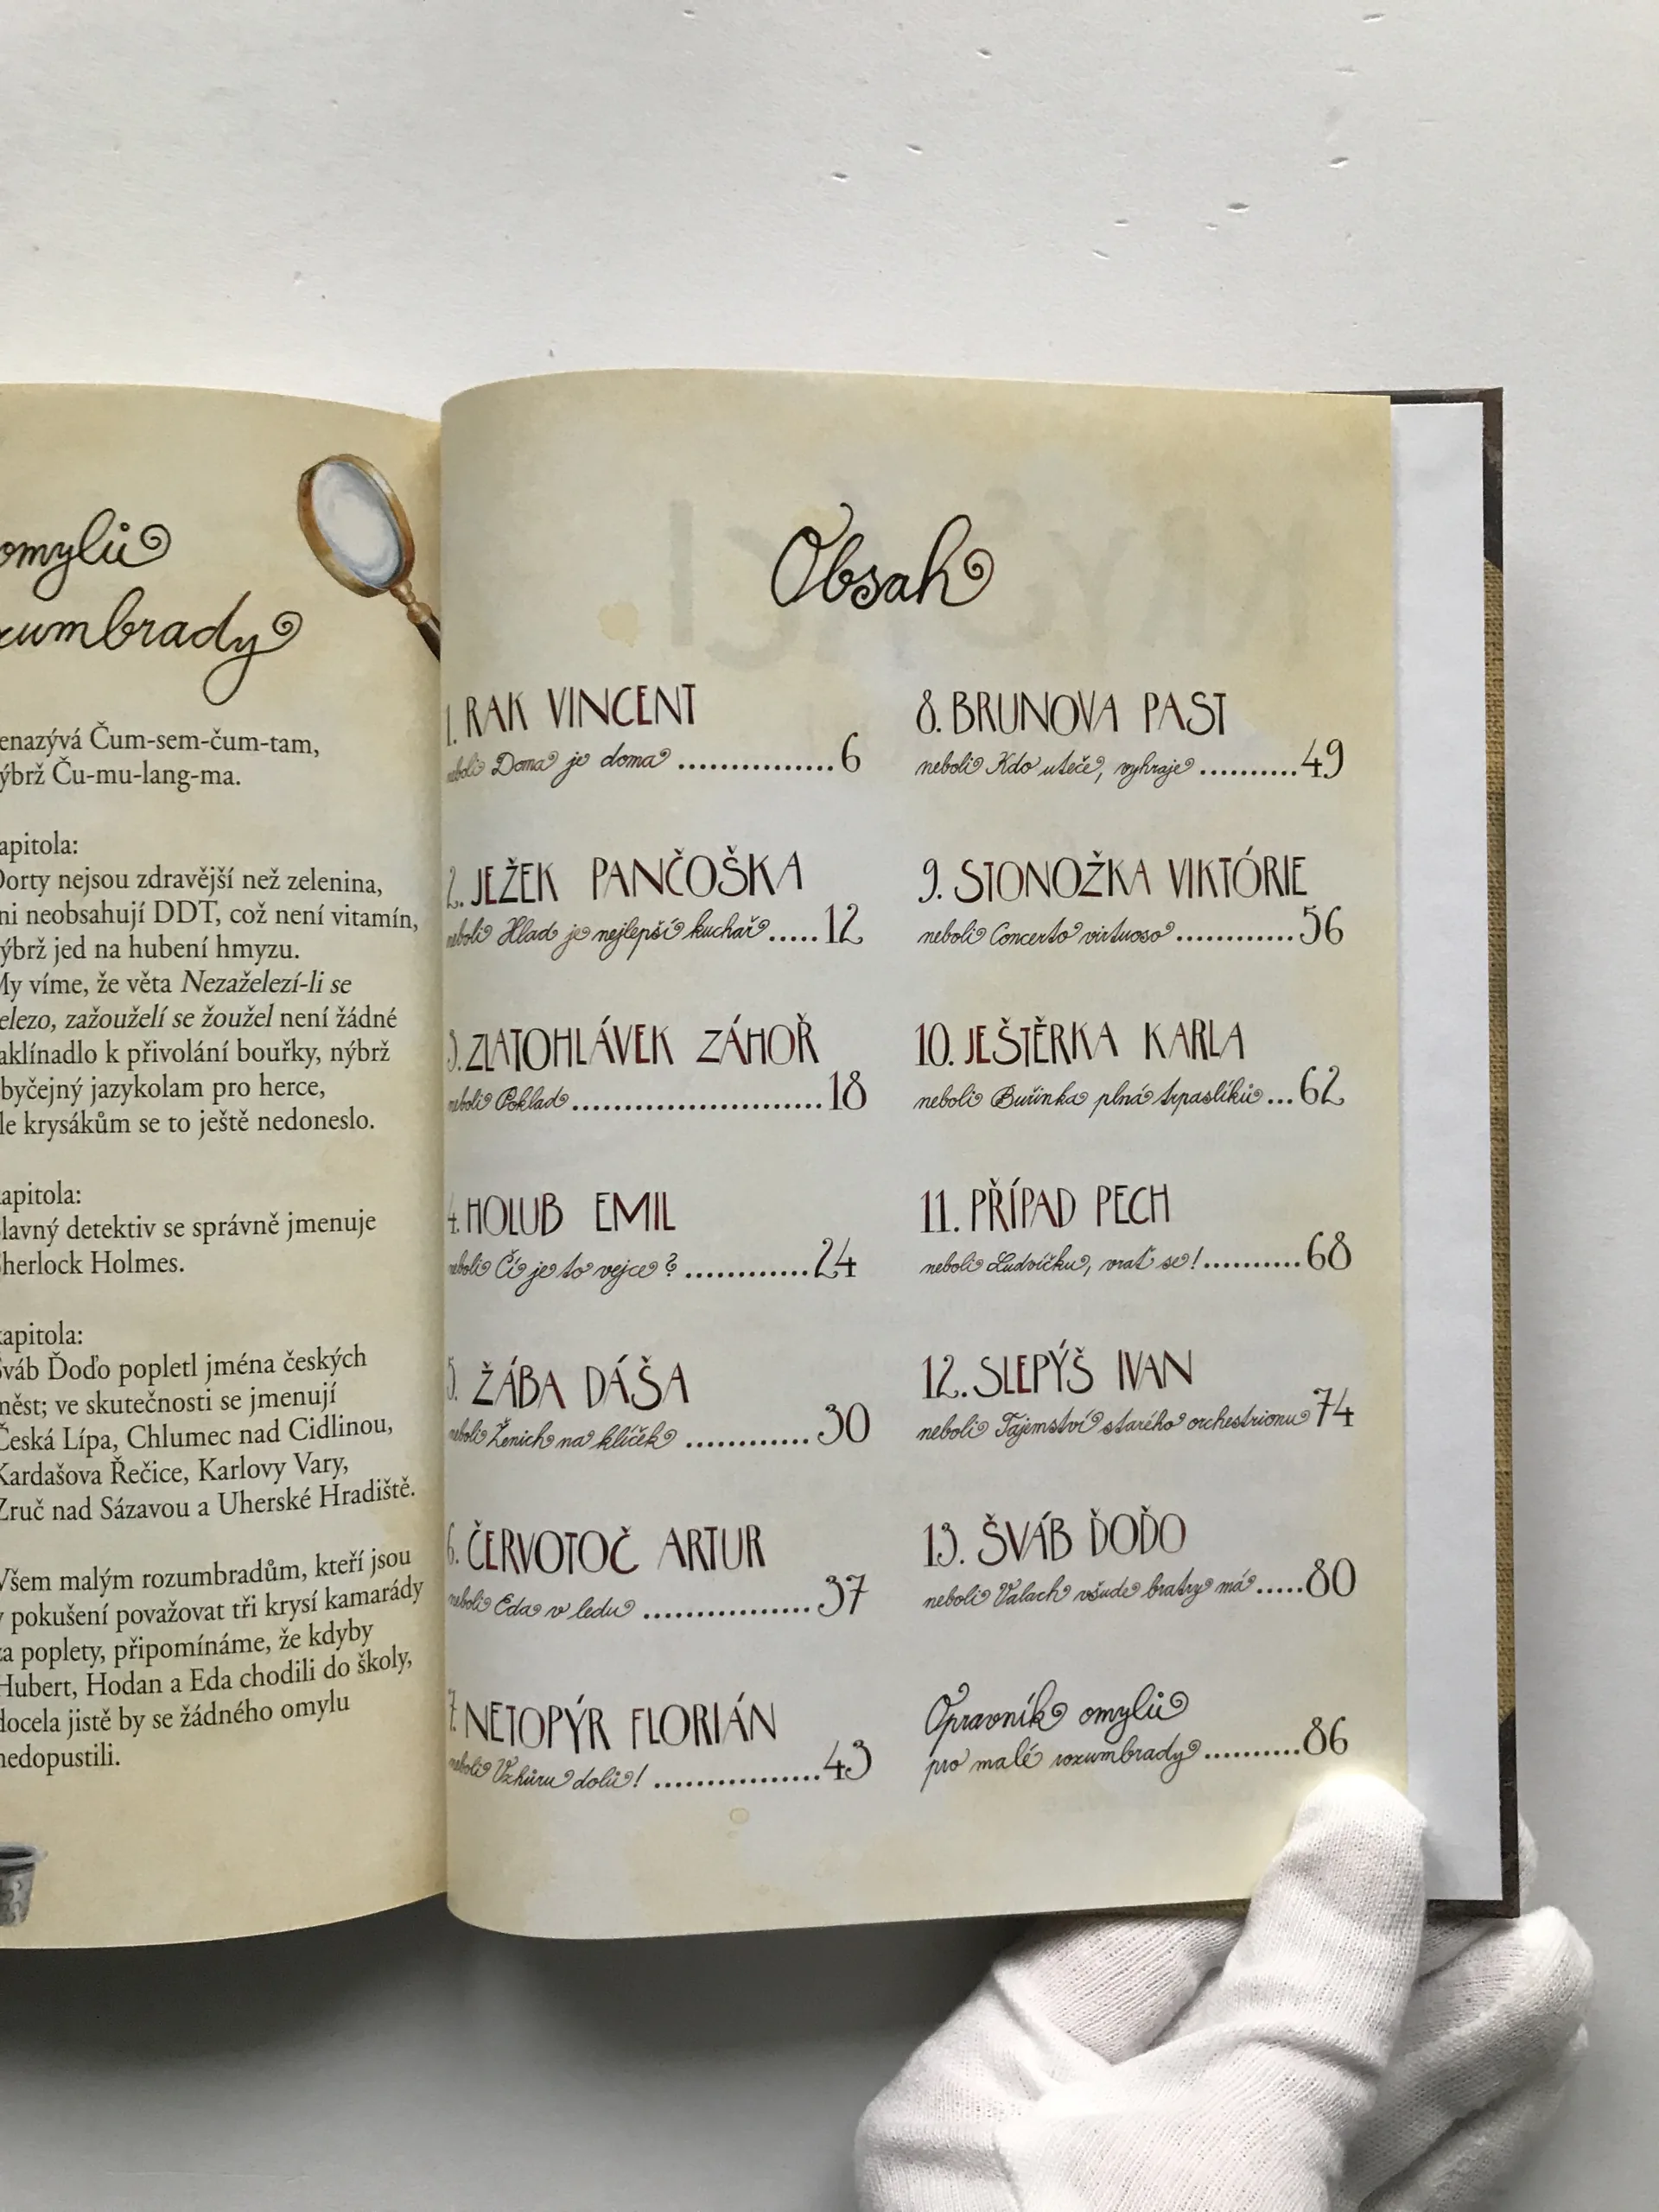 omylů
zumbrady
enazývá Čum-sem-čum-tam,
ýbrž Ču-mu-lang-ma.
apitola:
Dorty nejsou zdravější než zelenina,
ni neobsahují DDT, což není vitamín,
ýbrž jed na hubení hmyzu.
My víme, že věta Nezaželezí-li se
elezo, zažouželí se žoužel není žádné
aklínadlo k přivolání bouřky, nýbrž
byčejný jazykolam pro herce,
le krysákům se to ještě nedoneslo.
apitola:
lavný detektiv se správně jmenuje
Sherlock Holmes.
kapitola:
Šváb Ďoďo popletl jména českých
měst; ve skutečnosti se jmenují
Česká Lípa, Chlumec nad Cidlinou,
Kardašova Řečice, Karlovy Vary,
Zruč nad Sázavou a Uherské Hradiště.
Všem malým rozumbradům, kteří jsou
v pokušení považovat tři krysí kamarády
za poplety, připomínáme, že kdyby
Hubert, Hodan a Eda chodili do školy,
docela jistě by se žádného omylu
nedopustili.
Obsah
1. RAK VINCENT
neboli Doma je doma ............... 6
2. JEŽEK PANČOŠKA
neboli Hlad je nejlepší kuchař ..... 12
3. ZLATOHLÁVEK ZÁHOŘ
neboli Poklad ......................... 18
4. HOLUB EMIL
neboli Čí je to vejce? ............ 24
5. ŽÁBA DÁŠA
neboli Ženich na klíček ............ 30
6. ČERVOTOČ ARTUR
neboli Eda v ledu ................ 37
7. NETOPÝR FLORIÁN
neboli Vzhůru dolů! ................ 43
8. BRUNOVA PAST
neboli Kdo uteče, vyhraje .......... 49
9. STONOŽKA VIKTÓRIE
neboli Concerto virtuoso ............ 56
10. JEŠTĚRKA KARLA
neboli Buřinka plná trpaslíků ... 62
11. PŘÍPAD PECH
neboli Ludvíčku, vrať se! .......... 68
12. SLEPÝŠ IVAN
neboli Tajemství starého orchestrionu 74
13. ŠVÁB ĎOĎO
neboli Valach všude bratry má ..... 80
Opravník omylů
pro malé rozumbrady .......... 86